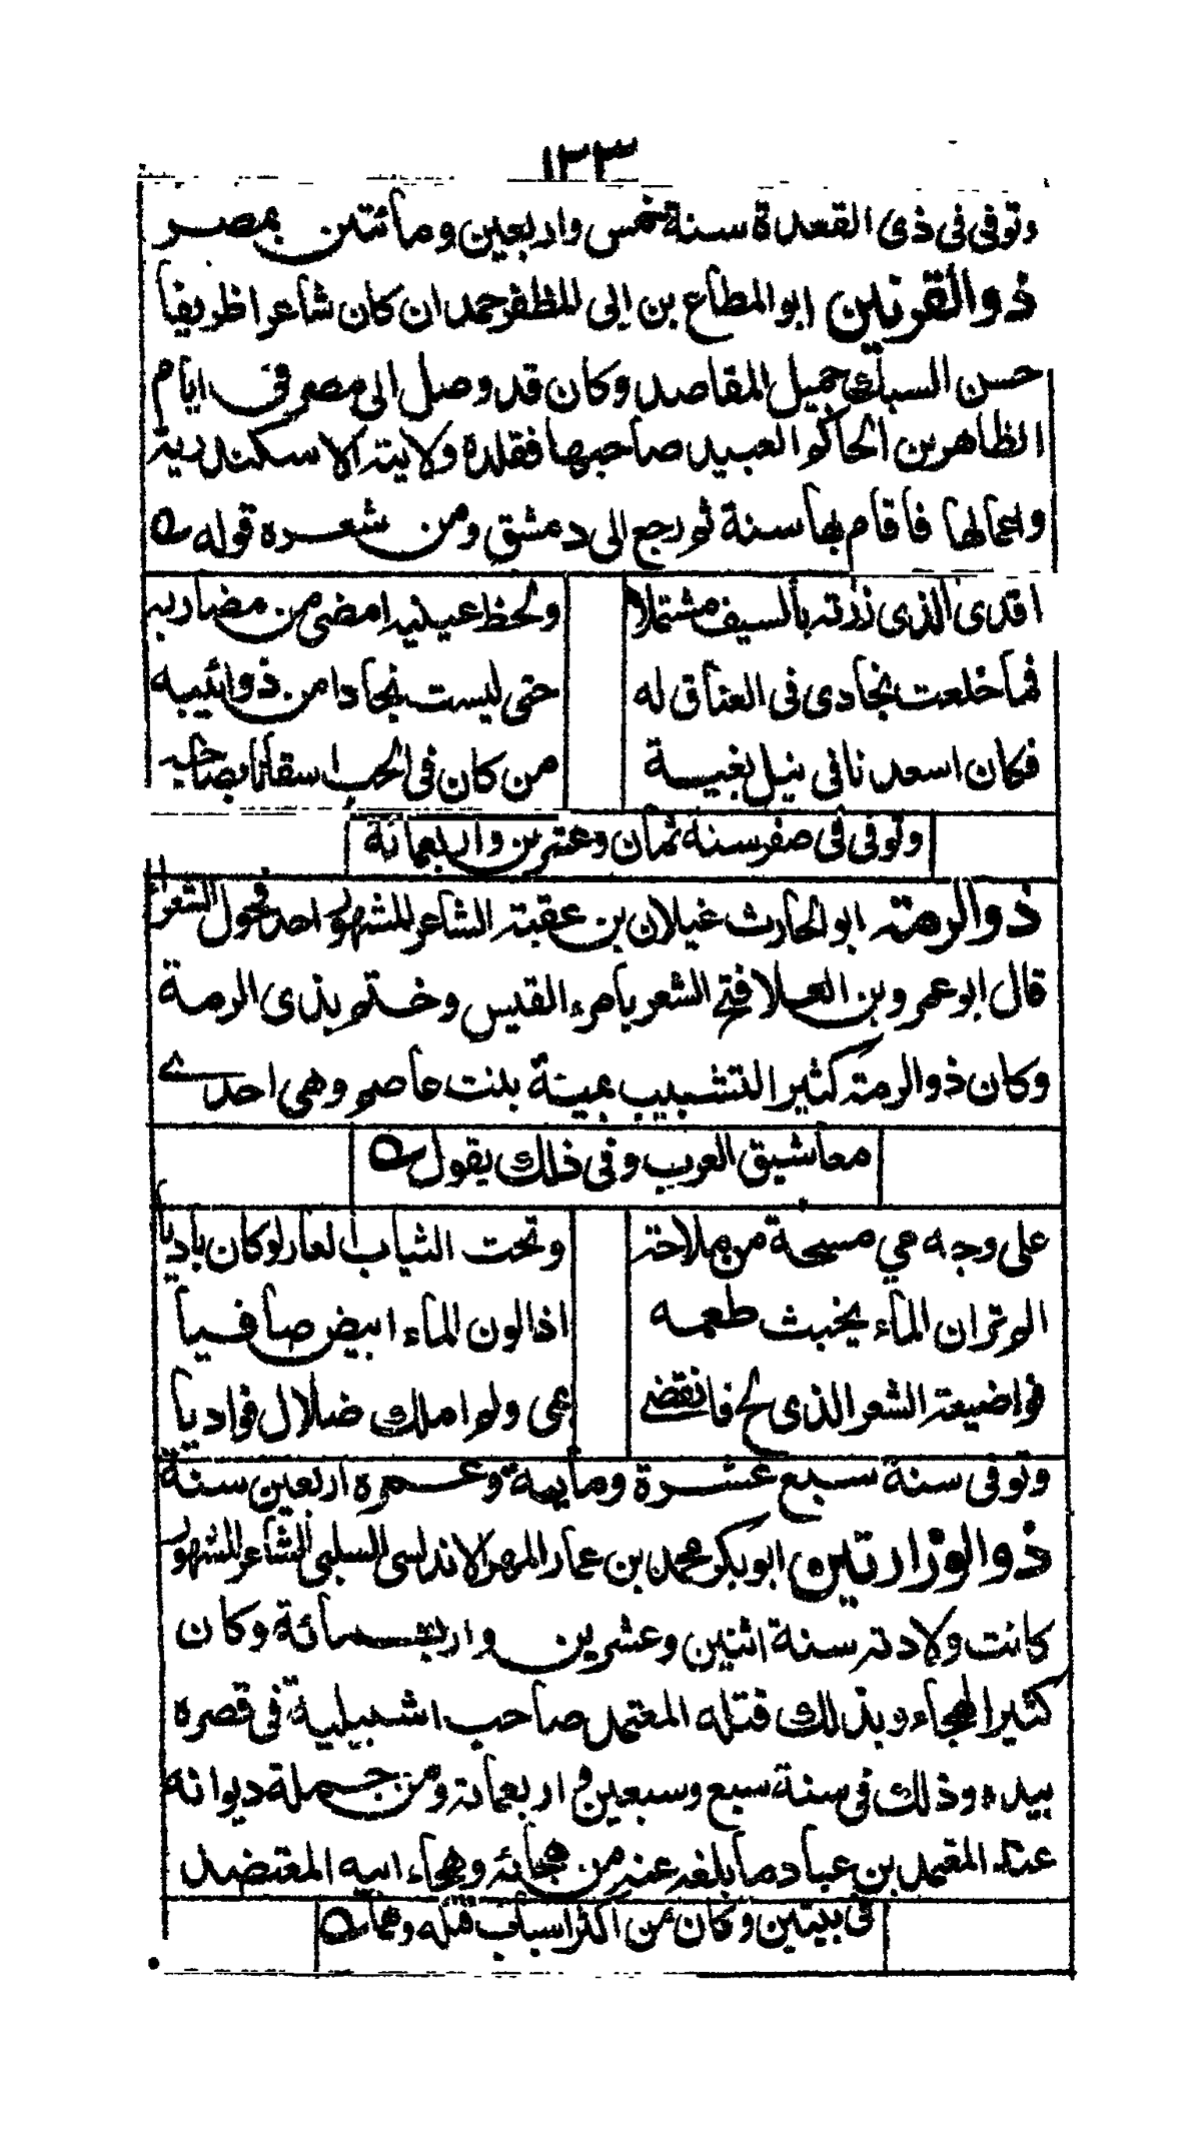 ١٣٣
وتوفى فى ذى القعدة سنة خمس واربعين ومائتين بمصر
ذوالقرنين ابوالمطاع بن ابى المظفر حمدان كان شاعرا ظريفا
حسن السبك جميل المقاصد وكان قد وصل الى مصر فى ايام
الظاهر بن الحاكم العبيد صاحبها فقلده ولاية الاسكندرية
واعمالها فاقام بها سنة ثم رجع الى دمشق ومن شعره قوله
افدى الذى زرته بالسيف مشتملا ولحظ عينيه امضى من مضاربه
فما خلعت نجادى فى العناق له حتى لبست نجادا من ذوائبه
فكان اسعدنا فى نيل بغيته من كان فى الحب اسقانا بصاحبه
وتوفى فى صفر سنة ثمان وعشرين واربعمائة
ذوالرمة ابوالحارث غيلان بن عقبة الشاعر المشهور احد فحول الشعراء
قال ابوعمرو بن العلا فتح الشعر بامرء القيس وختم بذى الرمة
وكان ذوالرمة كثير التشبيب بمية بنت عاصم وهى احدى
معاشيق العرب وفى ذلك يقول
على وجه مي مسحة من ملاحة وتحت الثياب العار لوكان باديا
الم تران الماء يخبث طعمه اذا لون الماء ابيض صافيا
فواضيعة الشعر الذى لج فانقضى بمى ولم املك ضلال فواديا
وتوفى سنة سبع عشرة ومايية وعمره اربعين سنة
ذوالوزارتين ابوبكر محمد بن عمار المهر الاندلسى السلبى الشاعر المشهور
كانت ولادته سنة اثنين وعشرين واربعمائة وكان
كثير الهجاء وبذلك قتله المعتمد صاحب اشبيلية فى قصره
بيده وذلك فى سنة سبع وسبعين واربعمائة ومن جملة ديوانه
عند المعتمد بن عباد ما بلغه عنه من هجائه وهجاء ابيه المعتضد
فى بيتين وكان من اكثر اسباب قتله وهما